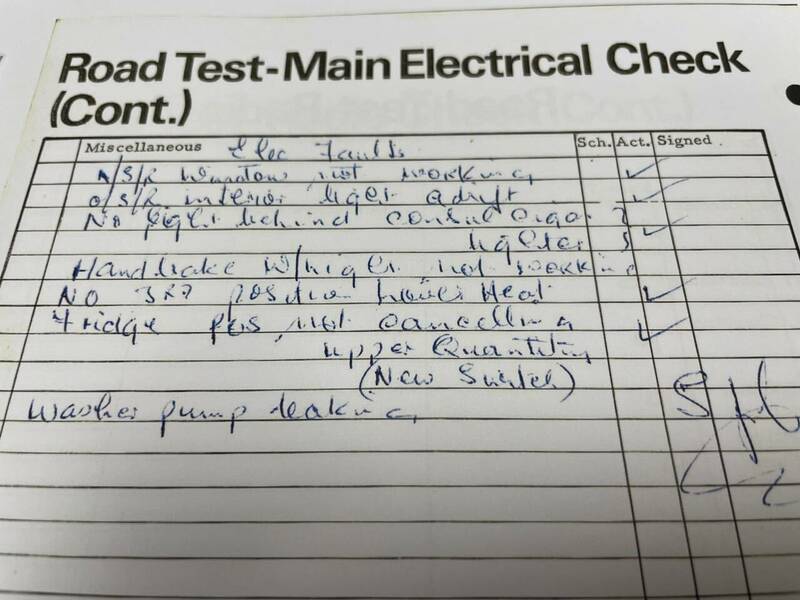 Road Test-Main Electrical Check
(Cont.)
Miscellaneous Elec Faults Sch. Act. Signed
N/S/R Window not working ✓
O/S/R interior liger adrift ✓
No liger behind consul cigar
ligeter ✓
Handbrake W/liger not working
NO 3RD position lower Heat ✓
Fridge pos not cancelling ✓
upper Quantity
(New Switch)
Washer pump leaking